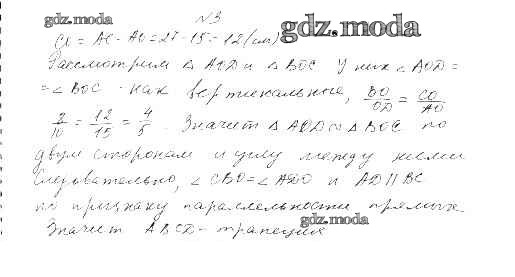 gdz.moda
№3
CO = AC - AO = 27 - 15 = 12 (см) gdz.moda
Рассмотрим △ AOD и △ BOC У них ∠ AOD =
= ∠ BOC - как вертикальные, BO/OD = CO/AO
8/10 = 12/15 = 4/5. Значит △ AOD ∾ △ BOC по
двум сторонам и углу между ними
Следовательно, ∠ CBO = ∠ ADO и AD || BC
по признаку параллельности прямых
gdz.moda
Значит ABCD - трапеция